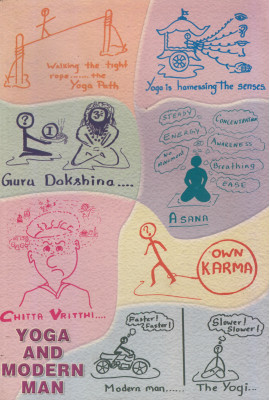 Walking the tight
rope....... the
Yoga Path
Yoga is harnessing the senses
?
1
Guru Dakshina....
STEADY
CONCENTRATION
ENERGY
AWARENESS
Breathing
EASE
ASANA
CHITTA VRITTHI....
?
OWN
KARMA
YOGA
AND
MODERN
MAN
Faster!
Faster!
Modern man......
Slower!
Slower!
The Yogi...